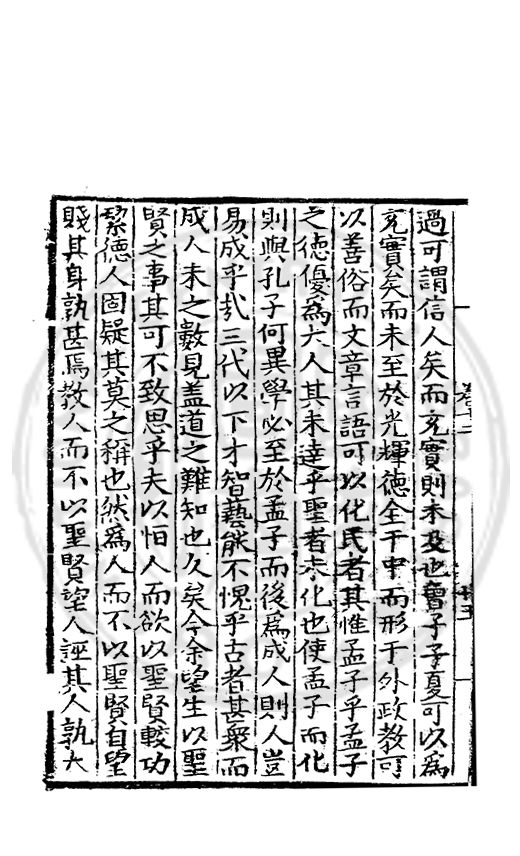 過可謂信人矣而充實則未及也曾子子夏可以為
充實矣而未至於光輝德全于中而形于外政教可
以善俗而文章言語可以化民者其惟孟子乎孟子
之德優為大人其未達乎聖者未化也使孟子而化
則與孔子何異學必至於孟子而後為成人則人豈
易成乎哉三代以下才智藝能不愧乎古者甚衆而
成人未之數見盖道之難知也久矣今余望生以聖
賢之事其可不致思乎夫以怕人而欲以聖賢較功
絜德人固疑其莫之稱也然為人而不以聖賢自望
賤其身孰甚焉教人而不以聖賢望人誣其人孰大